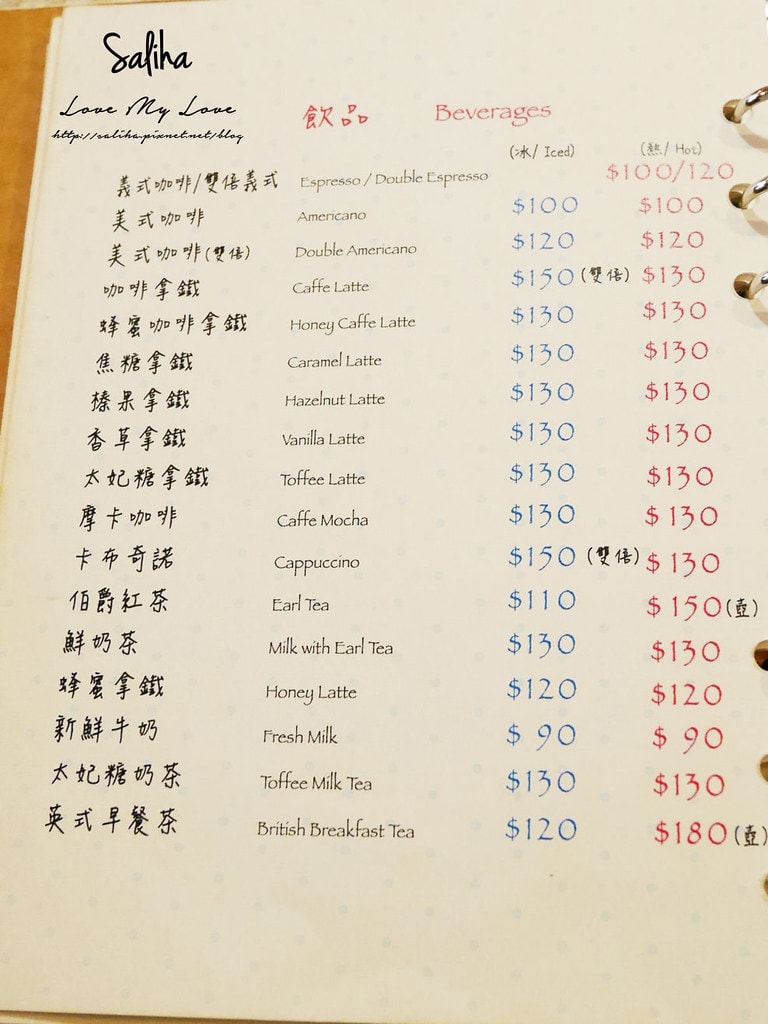 Saliha
Love My Love
http://saliha.pixnet.net/blog
飲品 Beverages
(冰/ Iced) (熱/ Hot)
義式咖啡/雙倍義式 Espresso / Double Espresso $100/120
美式咖啡 Americano $100 $100
美式咖啡(雙倍) Double Americano $120 $120
咖啡拿鐵 Caffe Latte $150(雙倍) $130
蜂蜜咖啡拿鐵 Honey Caffe Latte $130 $130
焦糖拿鐵 Caramel Latte $130 $130
榛果拿鐵 Hazelnut Latte $130 $130
香草拿鐵 Vanilla Latte $130 $130
太妃糖拿鐵 Toffee Latte $130 $130
摩卡咖啡 Caffe Mocha $130 $130
卡布奇諾 Cappuccino $150 (雙倍) $130
伯爵紅茶 Earl Tea $110 $150(壺)
鮮奶茶 Milk with Earl Tea $130 $130
蜂蜜拿鐵 Honey Latte $120 $120
新鮮牛奶 Fresh Milk $ 90 $ 90
太妃糖奶茶 Toffee Milk Tea $130 $130
英式早餐茶 British Breakfast Tea $120 $180(壺)